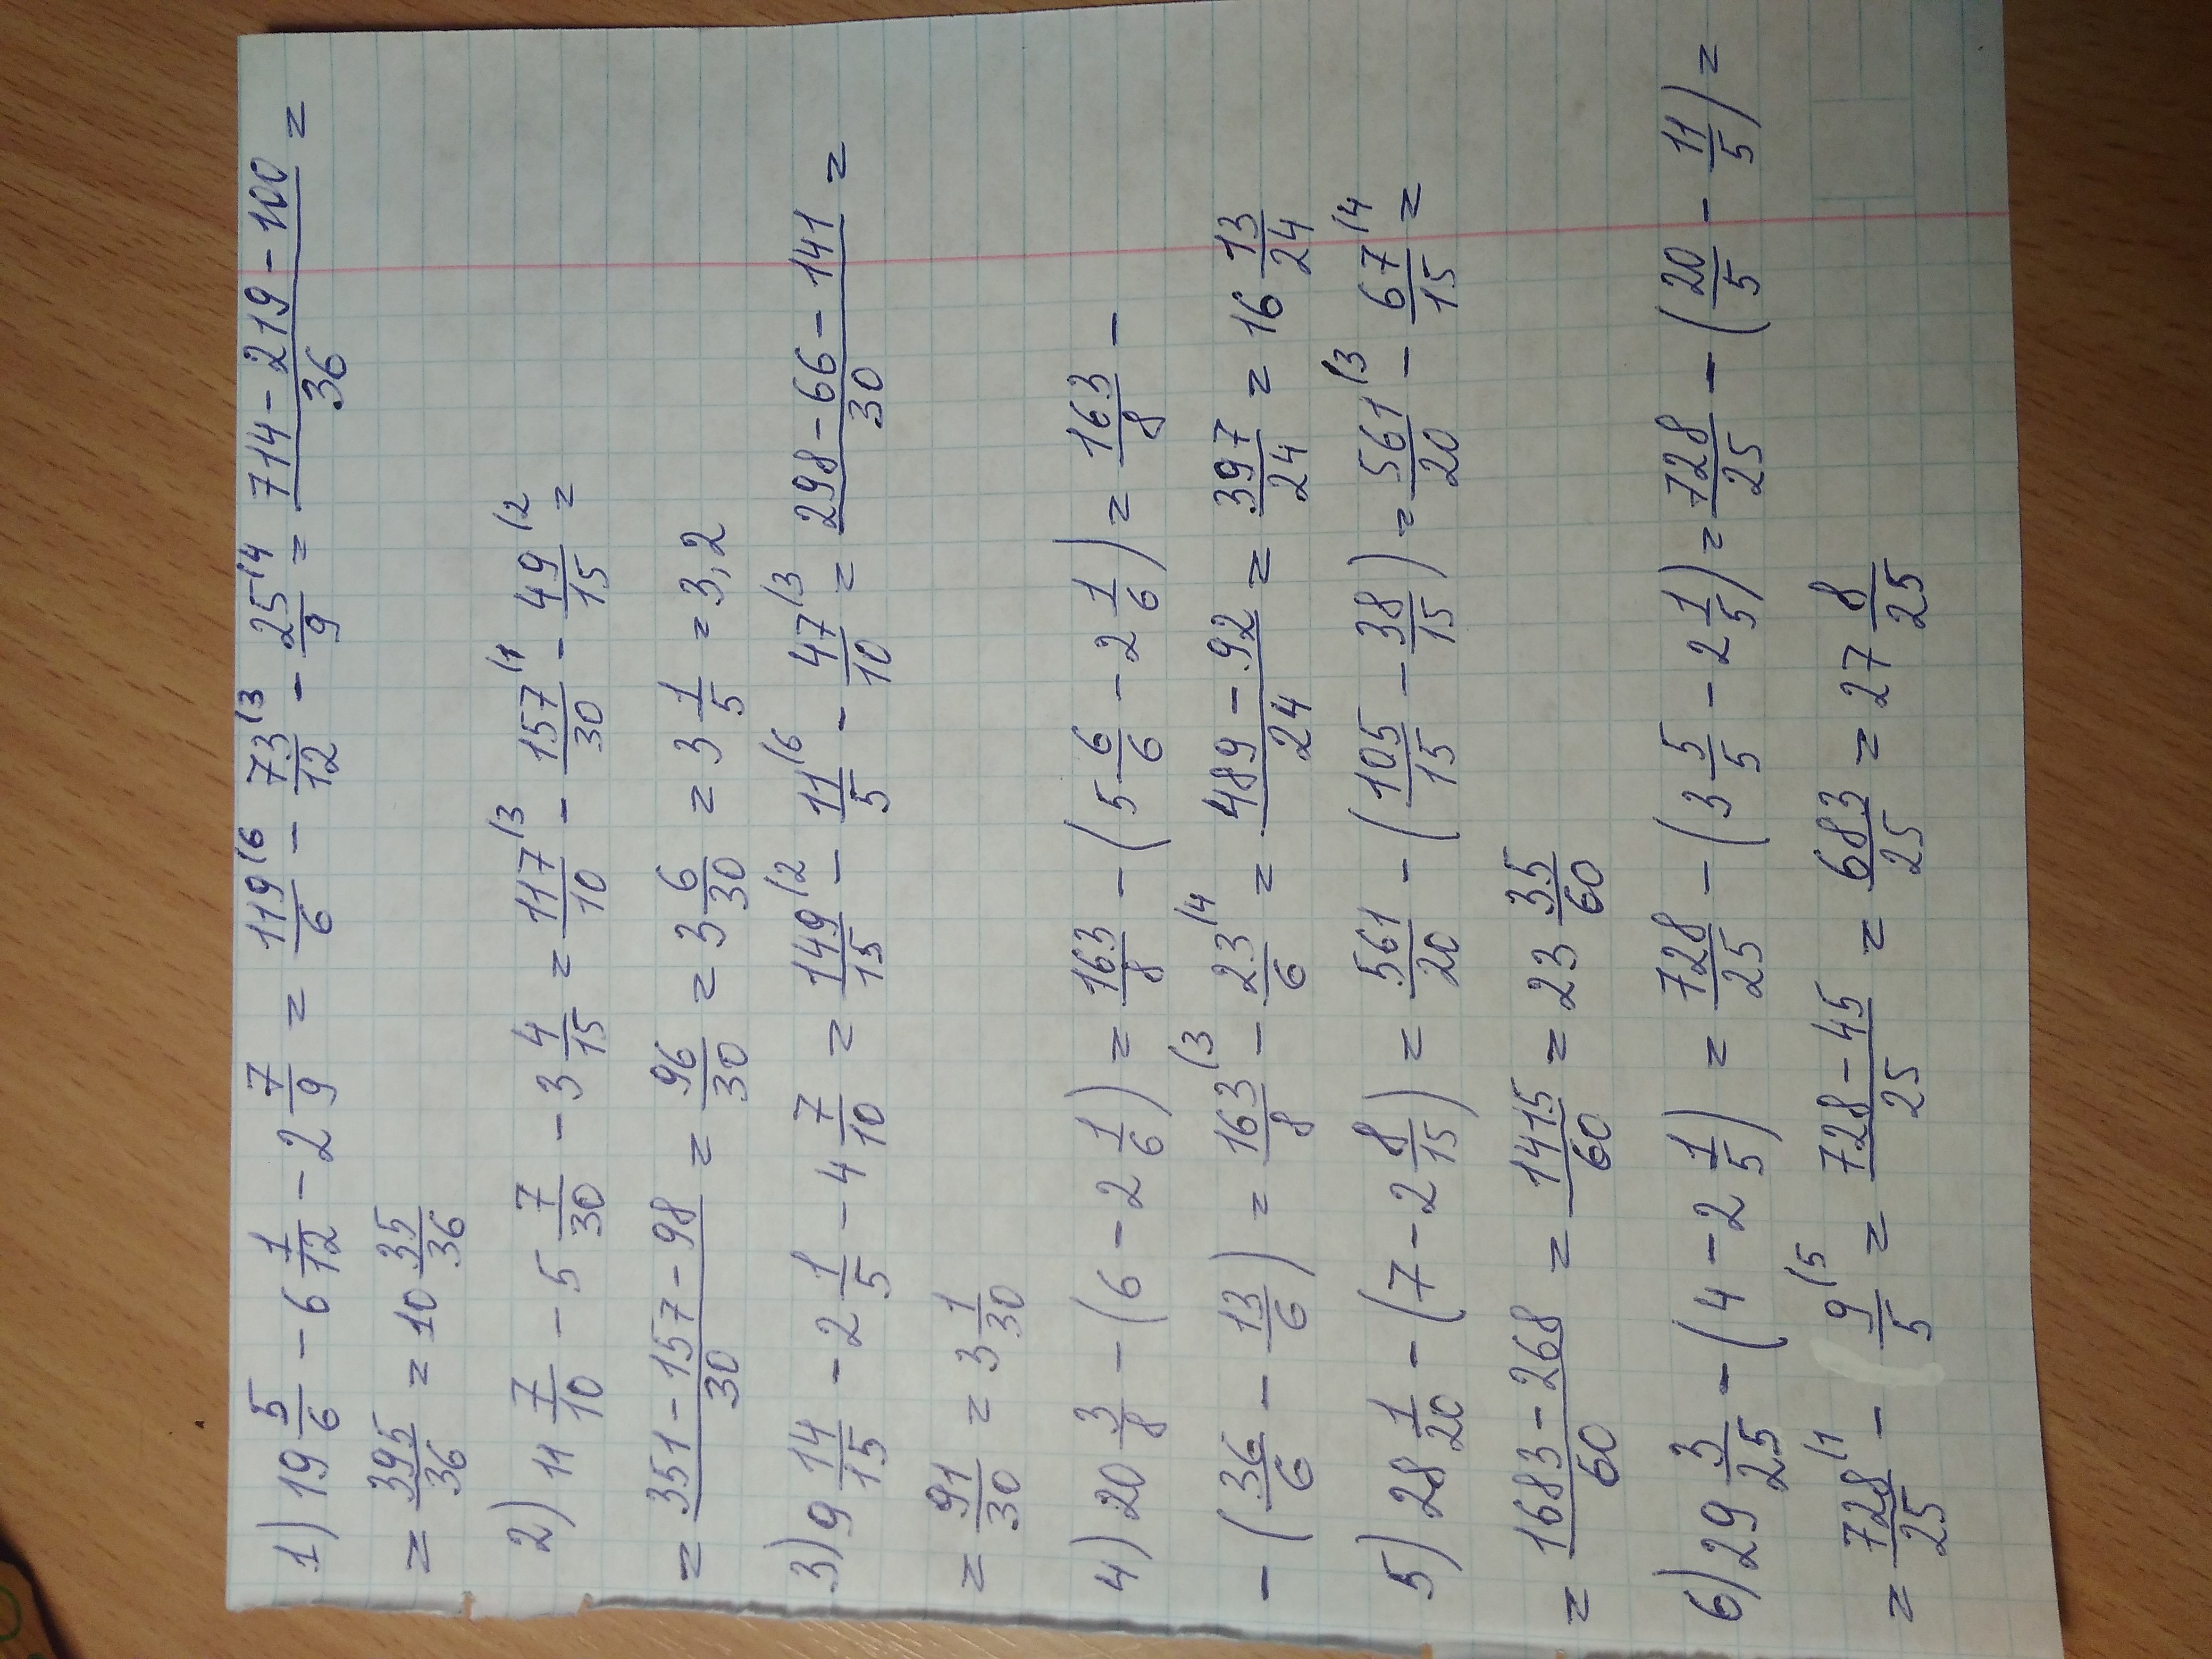 1) 19 5/6 - 6 1/12 - 2 7/9 = 119/6 (6 - 73/12 (3 - 25/9 (4 = 714 - 219 - 100/36 =
= 395/36 = 10 35/36
2) 11 7/10 - 5 7/30 - 3 4/15 = 117/10 (3 - 157/30 (1 - 49/15 (2 =
= 351 - 157 - 98/30 = 96/30 = 3 6/30 = 3 1/5 = 3,2
3) 9 14/15 - 2 1/5 - 4 7/10 = 149/15 (2 - 11/5 (6 - 47/10 (3 = 298 - 66 - 141/30 =
= 91/30 = 3 1/30
4) 20 3/8 - (6 - 2 1/6) = 163/8 - (5 6/6 - 2 1/6) = 163/8 -
- (36/6 - 13/6) = 163/8 (3 - 23/6 (4 = 489 - 92/24 = 397/24 = 16 13/24
5) 28 1/20 - (7 - 2 8/15) = 561/20 - (105/15 - 38/15) = 561/20 (3 - 67/15 (4 =
= 1683 - 268/60 = 1415/60 = 23 35/60
6) 29 3/25 - (4 - 2 1/5) = 728/25 - (3 5/5 - 2 1/5) = 728/25 - (20/5 - 11/5) =
= 728/25 (1 - 9/5 (5 = 728 - 45/25 = 683/25 = 27 8/25